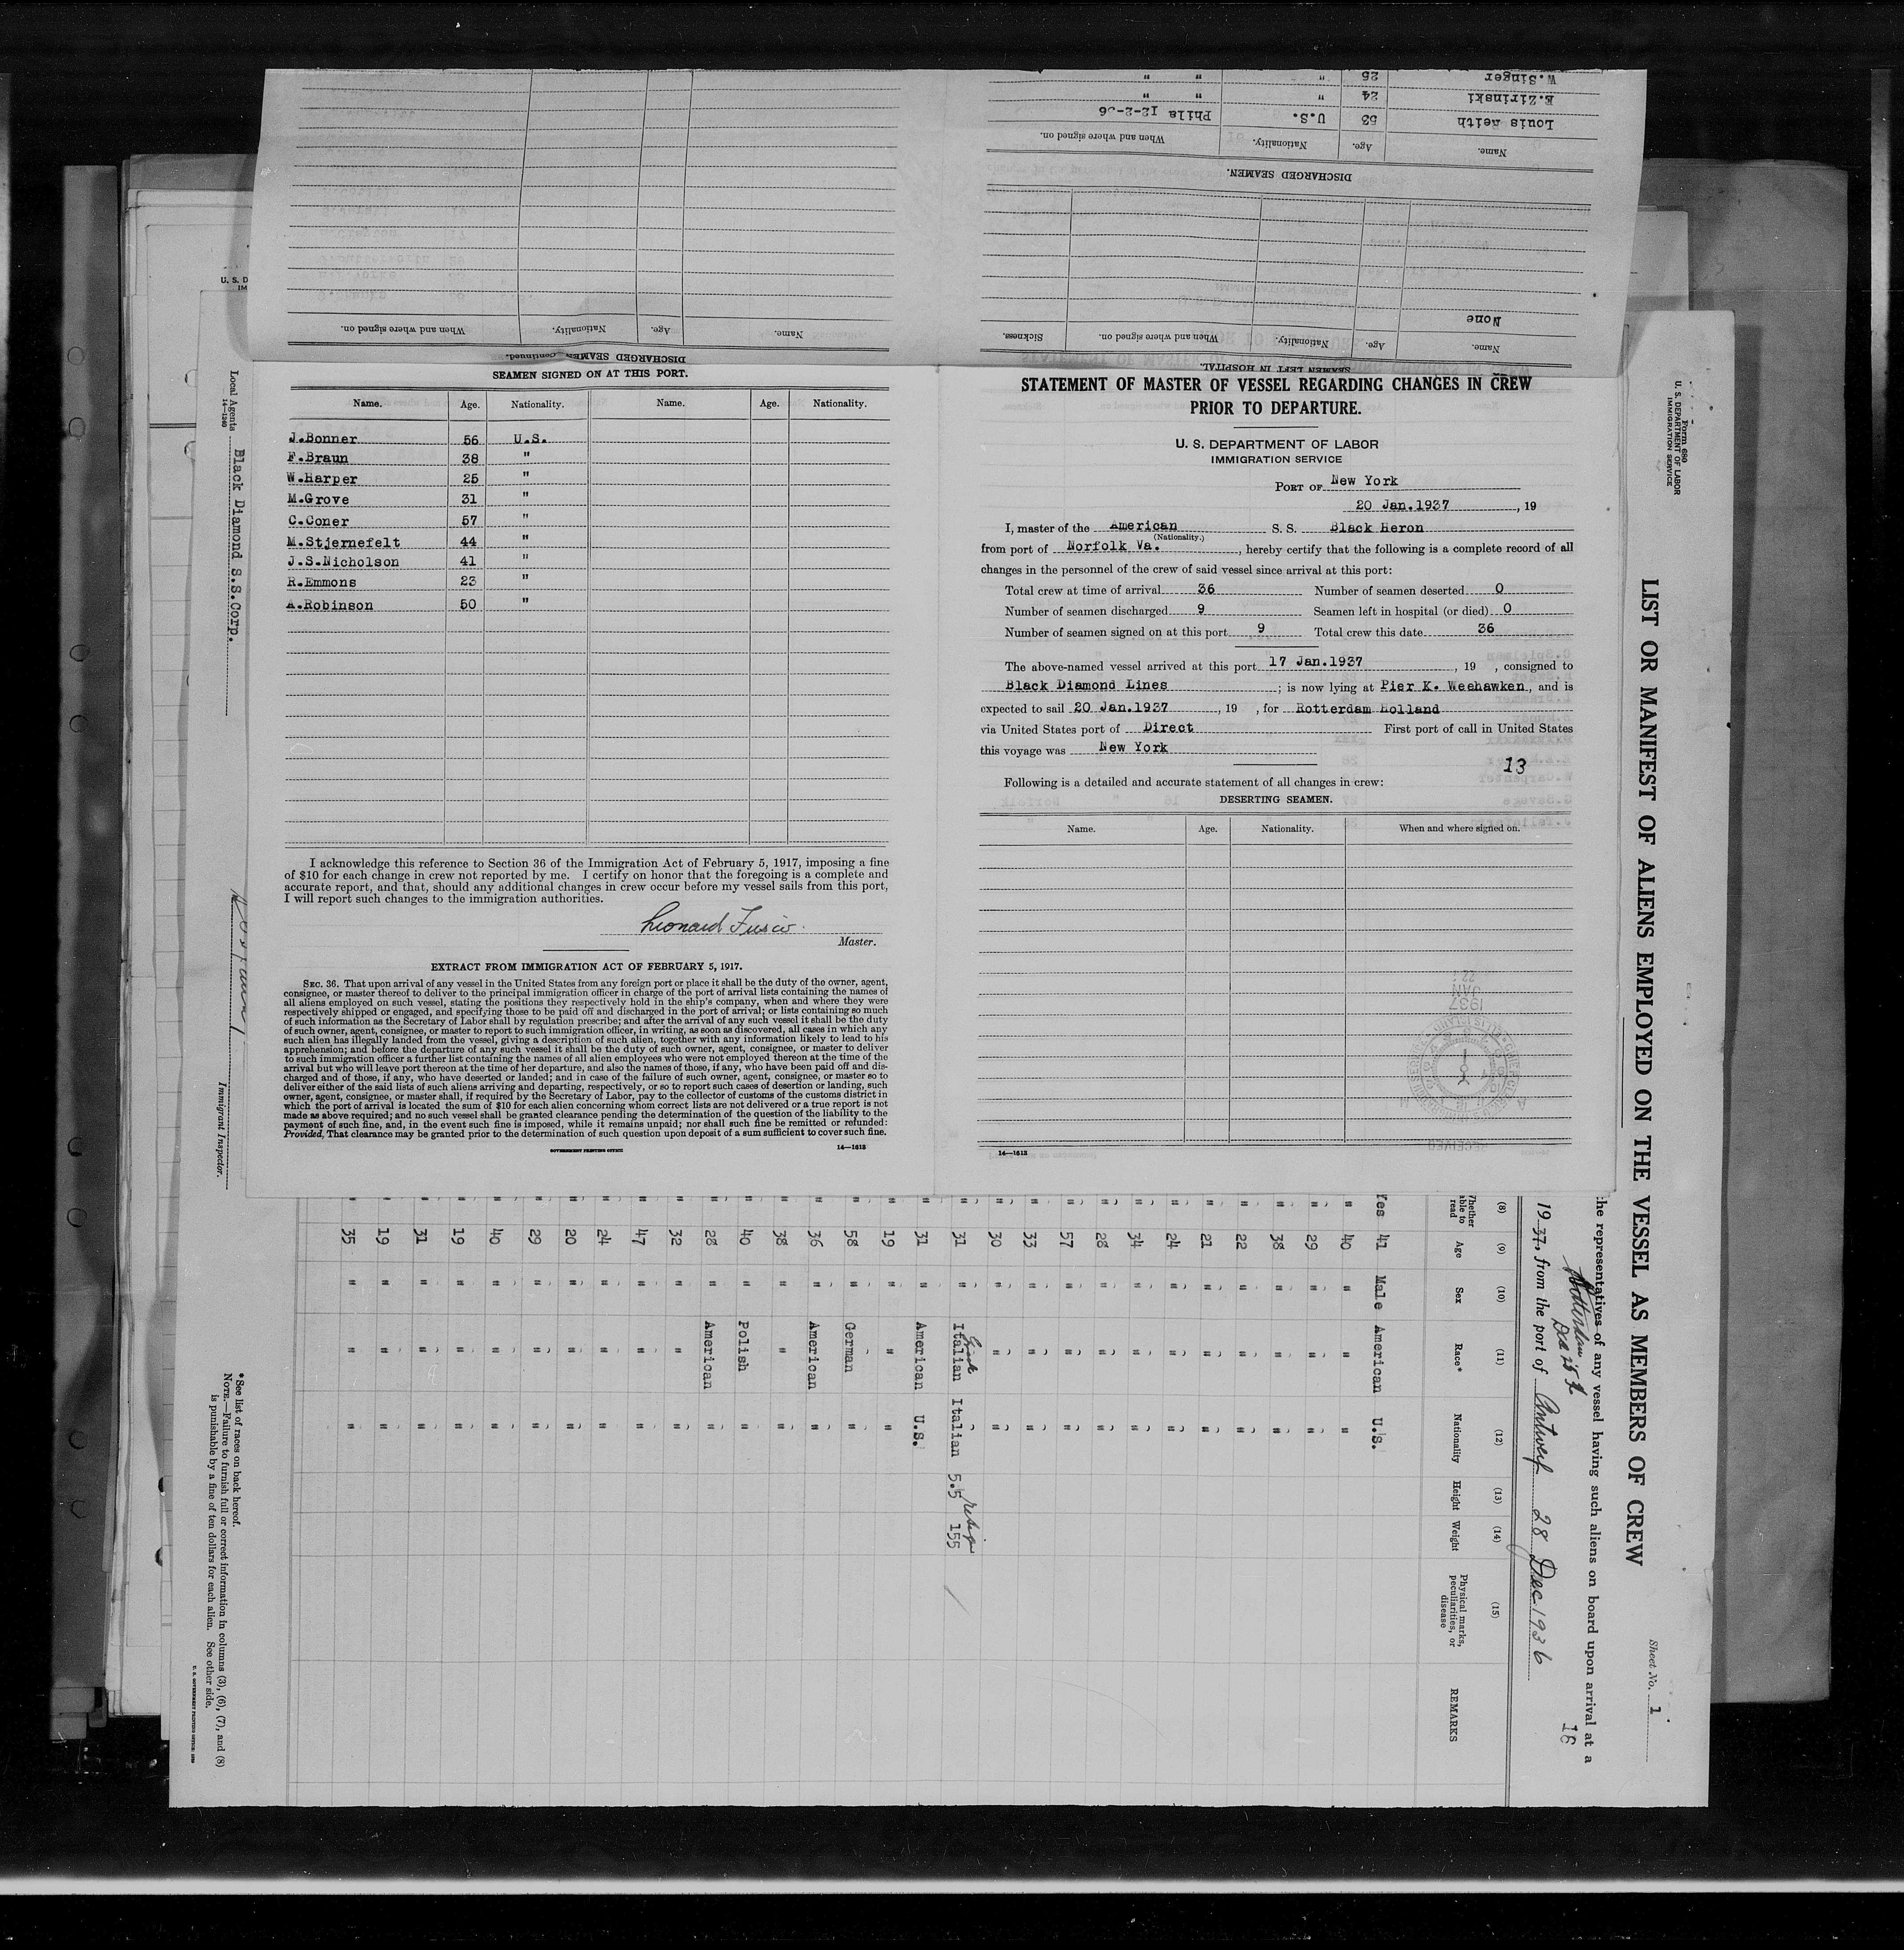 W.Singer 25 " " "
E.Zirinski 24 " " "
Louis 53 U.S. Phila 12-2-36
Name. Age. Nationality. When and where signed on.
DISCHARGED SEAMEN.
None
Name. Age. Nationality. When and where signed on. Sickness.
SEAMEN LEFT IN HOSPITAL.
Name. Age. Nationality. When and where signed on.
DISCHARGED SEAMEN—Continued.
SEAMEN SIGNED ON AT THIS PORT.
Name. Age. Nationality. Name. Age. Nationality.
J.Bonner 56 U.S.
F.Braun 38 "
W.Harper 25 "
M.Grove 31 "
C.Coner 57 "
M.Stjernefelt 44 "
J.S.Nicholson 41 "
R.Emmons 23 "
A.Robinson 50 "
I acknowledge this reference to Section 36 of the Immigration Act of February 5, 1917, imposing a fine
of $10 for each change in crew not reported by me. I certify on honor that the foregoing is a complete and
accurate report, and that, should any additional changes in crew occur before my vessel sails from this port,
I will report such changes to the immigration authorities.
Leonard Fusco.
Master.
EXTRACT FROM IMMIGRATION ACT OF FEBRUARY 5, 1917.
SEC. 36. That upon arrival of any vessel in the United States from any foreign port or place it shall be the duty of the owner, agent,
consignee, or master thereof to deliver to the principal immigration officer in charge of the port of arrival lists containing the names of
all aliens employed on such vessel, stating the positions they respectively hold in the ship's company, when and where they were
respectively shipped or engaged, and specifying those to be paid off and discharged in the port of arrival; or lists containing so much
of such information as the Secretary of Labor shall by regulation prescribe; and after the arrival of any such vessel it shall be the duty
of such owner, agent, consignee, or master to report to such immigration officer, in writing, as soon as discovered, all cases in which any
such alien has illegally landed from the vessel, giving a description of such alien, together with any information likely to lead to his
apprehension; and before the departure of any such vessel it shall be the duty of such owner, agent, consignee, or master to deliver
to such immigration officer a further list containing the names of all alien employees who were not employed thereon at the time of the
arrival but who will leave port thereon at the time of her departure, and also the names of those, if any, who have been paid off and dis-
charged and of those, if any, who have deserted or landed; and in case of the failure of such owner, agent, consignee, or master so to
deliver either of the said lists of such aliens arriving and departing, respectively, or so to report such cases of desertion or landing, such
owner, agent, consignee, or master shall, if required by the Secretary of Labor, pay to the collector of customs of the customs district in
which the port of arrival is located the sum of $10 for each alien concerning whom correct lists are not delivered or a true report is not
made as above required; and no such vessel shall be granted clearance pending the determination of the question of the liability to the
payment of such fine, and, in the event such fine is imposed, while it remains unpaid; nor shall such fine be remitted or refunded:
Provided, That clearance may be granted prior to the determination of such question upon deposit of a sum sufficient to cover such fine.
GOVERNMENT PRINTING OFFICE 14—1613
STATEMENT OF MASTER OF VESSEL REGARDING CHANGES IN CREW
PRIOR TO DEPARTURE.
U. S. DEPARTMENT OF LABOR
IMMIGRATION SERVICE
PORT OF New York
20 Jan.1937, 19
I, master of the American S. S. Black Heron
(Nationality.)
from port of Norfolk Va., hereby certify that the following is a complete record of all
changes in the personnel of the crew of said vessel since arrival at this port:
Total crew at time of arrival 36 Number of seamen deserted 0
Number of seamen discharged 9 Seamen left in hospital (or died) 0
Number of seamen signed on at this port 9 Total crew this date 36
The above-named vessel arrived at this port 17 Jan.1937, 19 , consigned to
Black Diamond Lines; is now lying at Pier K. Weehawken, and is
expected to sail 20 Jan.1937, 19 , for Rotterdam Holland
via United States port of Direct First port of call in United States
this voyage was New York
13
Following is a detailed and accurate statement of all changes in crew:
DESERTING SEAMEN.
Name. Age. Nationality. When and where signed on.
14—1613
U. S. D
IM
Local Agents Black Diamond S.S.Corp.
14—1240
Immigrant Inspector.
Form 680
U. S. DEPARTMENT OF LABOR
IMMIGRATION SERVICE
LIST OR MANIFEST OF ALIENS EMPLOYED ON THE VESSEL AS MEMBERS OF CREW
Sheet No. 1
the representatives of any vessel having such aliens on board upon arrival at a
16
Rotterdam
Dec 25
19 37, from the port of Antwerp 28 Dec 1936
(8) (9) (10) (11) (12) (13) (14) (15)
Whether able to read Age Sex Race* Nationality Height Weight Physical marks, peculiarities, or disease REMARKS
Yes 41 Male American U.S.
" 40 " " "
" 29 " " "
" 38 " " "
" 22 " " "
" 21 " " "
" 24 " " "
" 34 " " "
" 28 " " "
" 57 " " "
" 33 " " "
" 30 " " "
" 31 " Italian Italian 5.5 155
" 31 " American U.S.
" 19 " " "
" 58 " German "
" 36 " American "
" 38 " " "
" 40 " Polish "
" 28 " American "
" 32 " " "
" 47 " " "
" 24 " " "
" 20 " " "
" 29 " " "
" 40 " " "
" 19 " " "
" 31 " " "
" 19 " " "
" 35 " " "
* See list of races on back hereof.
NOTE.—Failure to furnish full or correct information in columns (3), (6), (7), and (8)
is punishable by a fine of ten dollars for each alien. See other side.